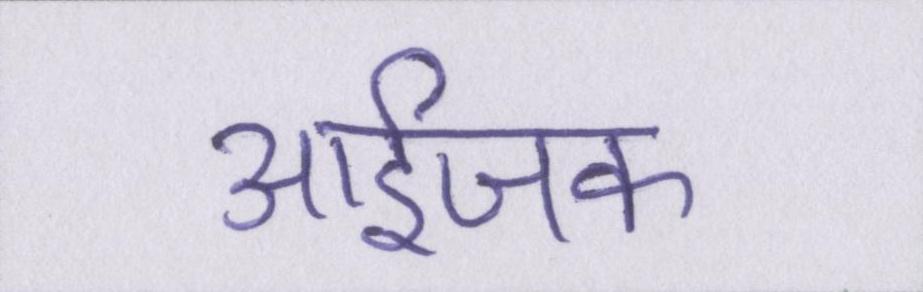 आईजक